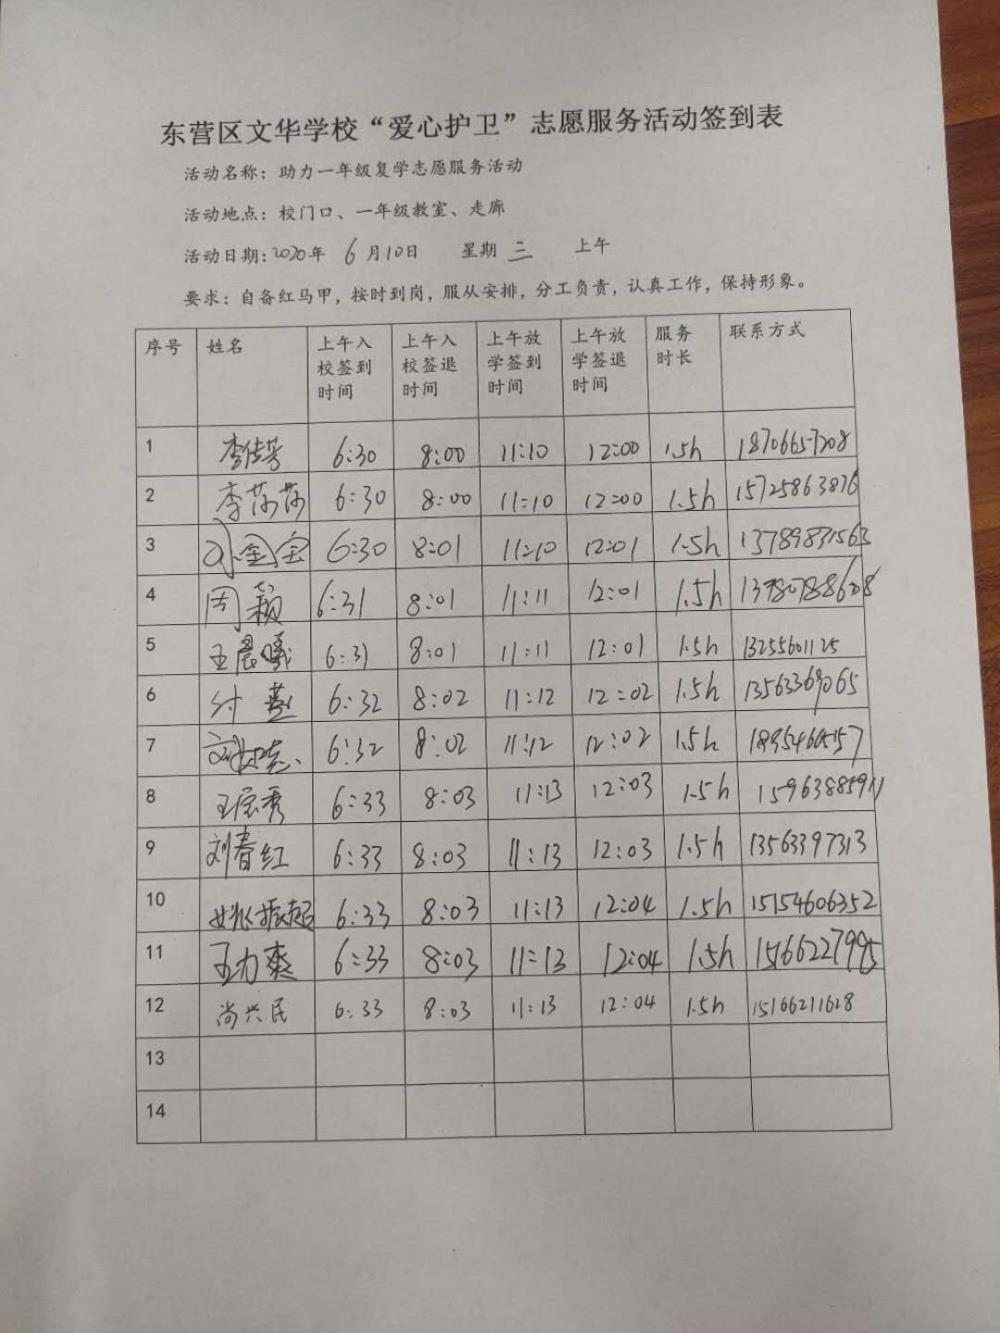 东营区文华学校“爱心护卫”志愿服务活动签到表
活动名称：助力一年级复学志愿服务活动
活动地点：校门口、一年级教室、走廊
活动日期：2020年 6月10日 星期三 上午
要求：自备红马甲，按时到岗，服从安排，分工负责，认真工作，保持形象。
序号 姓名 上午入校签到时间 上午入校签退时间 上午放学签到时间 上午放学签退时间 服务时长 联系方式
1 李佳芳 6:30 8:00 11:10 12:00 1.5h 18706657208
2 李莎莎 6:30 8:00 11:10 12:00 1.5h 15725863876
3 刘金宝 6:30 8:01 11:10 12:01 1.5h 13789831563
4 周颖 6:31 8:01 11:11 12:01 1.5h
5 王晨曦 6:31 8:01 11:11 12:01 1.5h 13255601125
6 付燕 6:32 8:02 11:12 12:02 1.5h 13563369065
7 6:32 8:02 11:12 12:02 1.5h 18954605157
8 6:33 8:03 11:13 12:03 1.5h 15963885911
9 刘春红 6:33 8:03 11:13 12:03 1.5h 13563397313
10 姚振超 6:33 8:03 11:13 12:04 1.5h 15154606352
11 王力爽 6:33 8:03 11:13 12:04 1.5h 15166227995
12 尚兴民 6:33 8:03 11:13 12:04 1.5h 15166211628
13
14